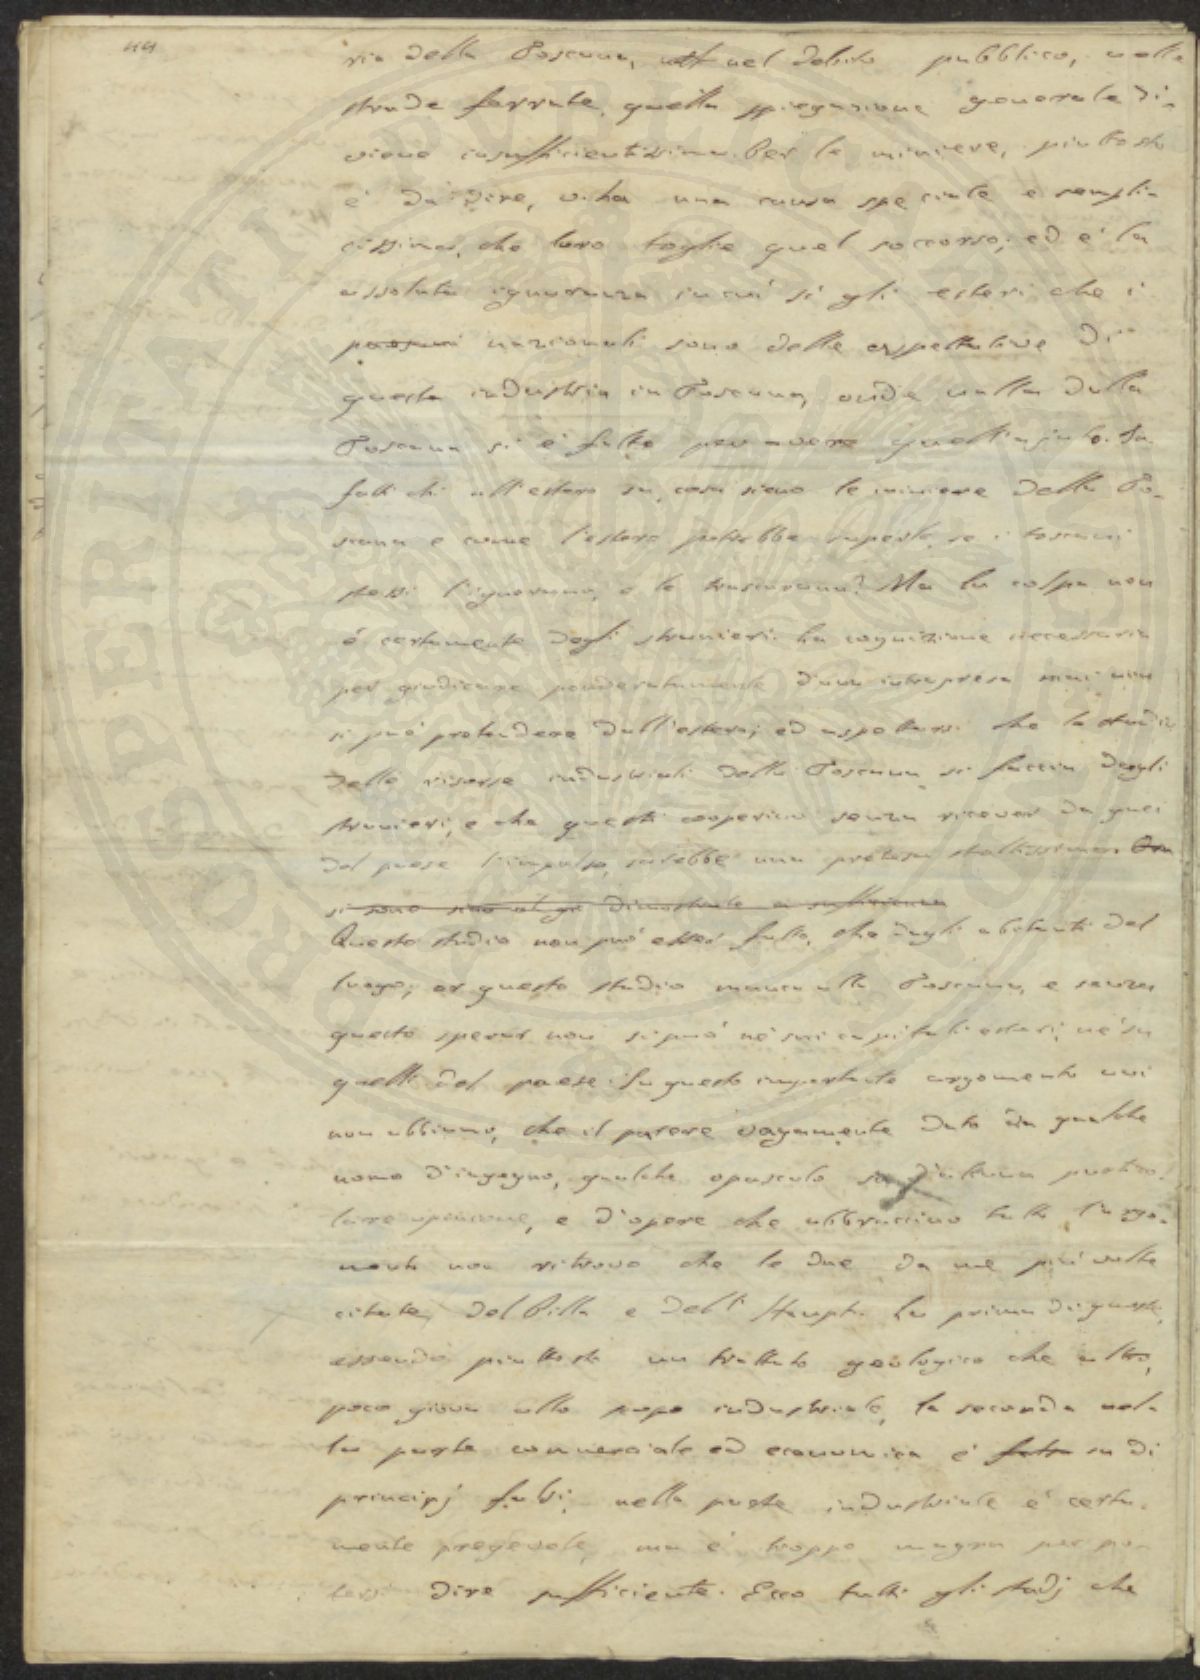 44
ria della Toscana, nel debito pubblico, nelle
strade ferrate, quella spiegazione generale di-
viene insufficientissima. Per le miniere, piuttosto
è da dire, v'ha una causa speciale e sempli-
cissima, che loro toglie quel soccorso; ed e' la
assoluta ignoranza in cui sì gli esteri che i
paesani nazionali sono delle aspettative di
questa industria in Toscana, onde nulla dalla
Toscana si e' fatto per avere quell'ajuto. In
fatti chi all'estero sa, cosa sieno le miniere della To-
scana e come l'estero potrebbe saperlo, se i toscani
stessi l'ignorano, e le trascurano? Ma la colpa non
é certamente degli stranieri. La cognizione necessaria
per giudicare ponderatamente d'una intrapresa mai non
si può pretendere dall'estero; ed aspettarsi che lo studio
delle risorse industriali della Toscana si faccia dagli
stranieri, e che questi cooperino senza ricever da quei
del paese l'impulso, sarebbe una pretesa stoltissima. Ora
si sono dimostrate a sufficienza
Questo studio non può esser fatto, che dagli abitanti del
luogo; or questo studio manca alla Toscana, e senza
questo sperar non si può nè sui capitali esteri, nè su
quelli del paese. Su questo importante argomento noi
non abbiamo, che il parere vagamente dato da qualche
uomo d'ingegno, qualche opuscolo su d'alcuna partico-
lare opinione, e d'opere che abbraccino tutto l'argo-
mento non ritrovo che le due da me più volte
citate, del Pilla e dell' Haupt. La prima di queste,
essendo piuttosto un trattato geologico che altro,
poco giova allo scopo industriale, la seconda nel-
la parte commerciale ed economica e' su di
principj falsi; nella parte industriale e' certa-
mente pregevole, ma e' troppo magra per po-
tersi dire sufficiente. Ecco tutti gli studj che